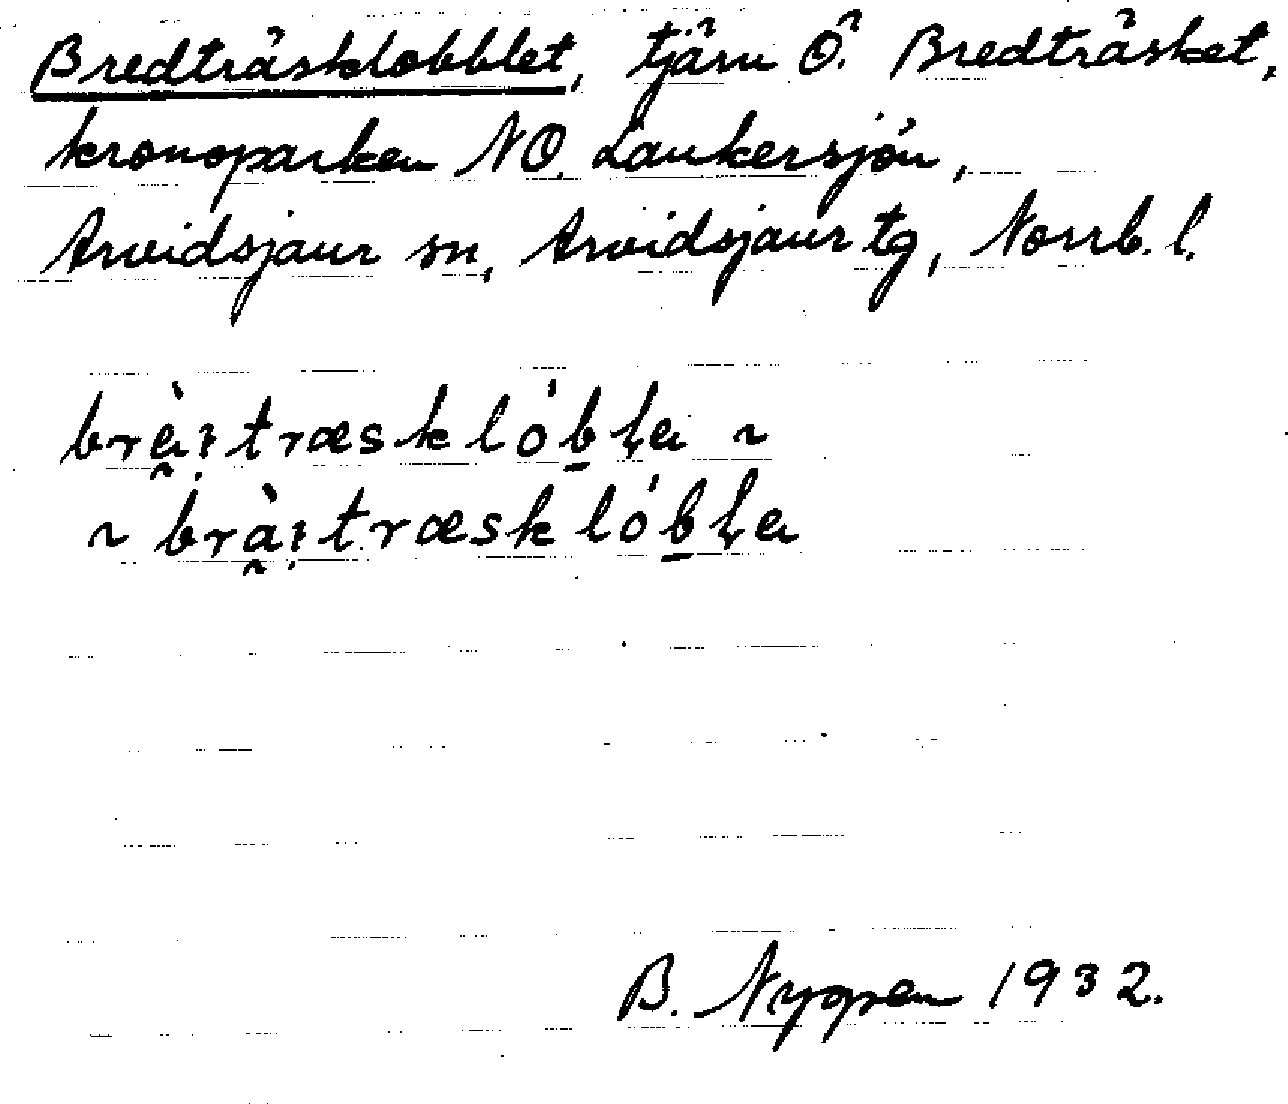 Bredträsklobblet, tjärn Ö. Bredträsket,
kronoparken NO. Laukersjön,
Arvidsjaur sn, Arvidsjaur tg, Norrb. l.
brèi̯træsklób̲ḷa ~
~ brài̯træsklób̲ḷa
B. Nygren 1932.